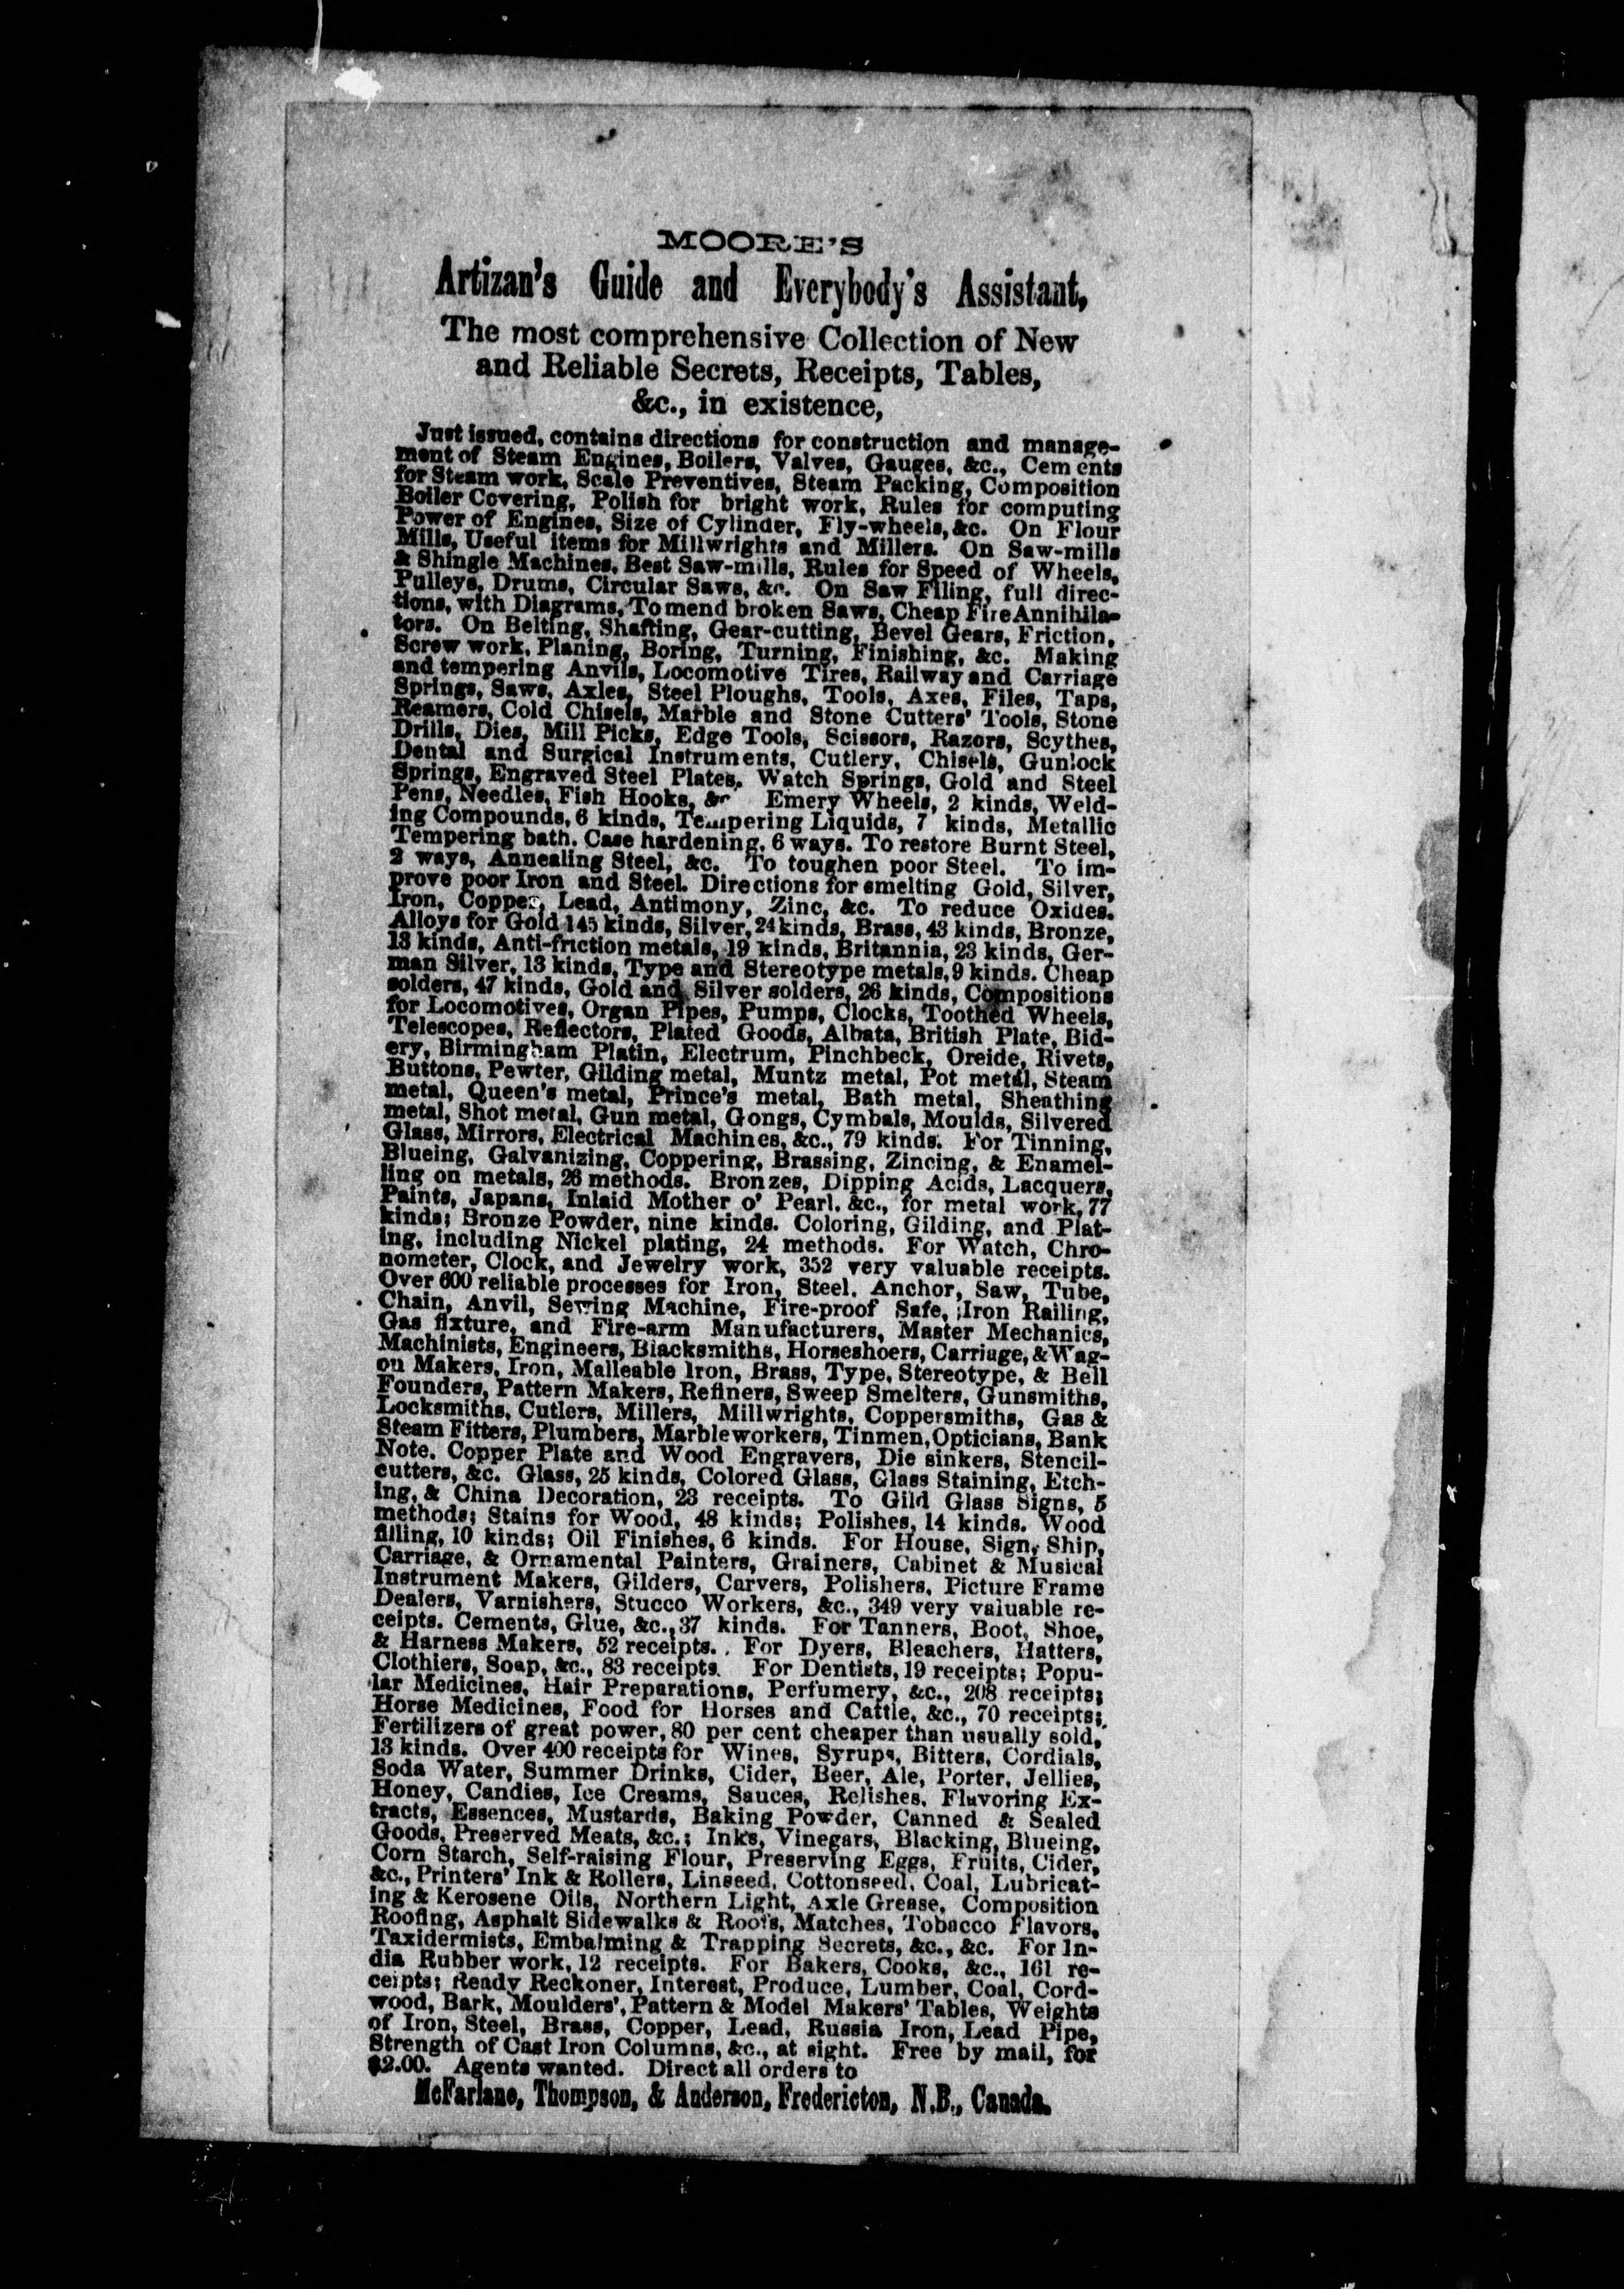 MOORE'S
Artizan's Guide and Everybody's Assistant,
The most comprehensive Collection of New
and Reliable Secrets, Receipts, Tables,
&c., in existence,
Just issued, contains directions for construction and manage-
ment of Steam Engines, Boilers, Valves, Gauges, &c., Cements
for Steam work, Scale Preventives, Steam Packing, Composition
Boiler Covering, Polish for bright work, Rules for computing
Power of Engines, Size of Cylinder, Fly-wheels, &c. On Flour
Mills, Useful items for Millwrights and Millers. On Saw-mills
& Shingle Machines, Best Saw-mills, Rules for Speed of Wheels,
Pulleys, Drums, Circular Saws, &c. On Saw Filing, full direc-
tions, with Diagrams, To mend broken Saws, Cheap Fire Annihila-
tors. On Belting, Shafting, Gear-cutting, Bevel Gears, Friction,
Screw work, Planing, Boring, Turning, Finishing, &c. Making
and tempering Anvils, Locomotive Tires, Railway and Carriage
Springs, Saws, Axles, Steel Ploughs, Tools, Axes, Files, Taps,
Reamers, Cold Chisels, Marble and Stone Cutters' Tools, Stone
Drills, Dies, Mill Picks, Edge Tools, Scissors, Razors, Scythes,
Dental and Surgical Instruments, Cutlery, Chisels, Gunlock
Springs, Engraved Steel Plates, Watch Springs, Gold and Steel
Pens, Needles, Fish Hooks, &c Emery Wheels, 2 kinds, Weld-
ing Compounds, 6 kinds, Tempering Liquids, 7 kinds, Metallic
Tempering bath. Case hardening, 6 ways. To restore Burnt Steel,
2 ways, Annealing Steel, &c. To toughen poor Steel. To im-
prove poor Iron and Steel. Directions for smelting Gold, Silver,
Iron, Copper, Lead, Antimony, Zinc, &c. To reduce Oxides.
Alloys for Gold 145 kinds, Silver, 24 kinds, Brass, 43 kinds, Bronze,
13 kinds, Anti-friction metals, 19 kinds, Britannia, 23 kinds, Ger-
man Silver, 13 kinds, Type and Stereotype metals, 9 kinds. Cheap
solders, 47 kinds, Gold and Silver solders, 26 kinds, Compositions
for Locomotives, Organ Pipes, Pumps, Clocks, Toothed Wheels,
Telescopes, Reflectors, Plated Goods, Albata, British Plate, Bid-
ery, Birmingham Platin, Electrum, Pinchbeck, Oreide, Rivets,
Buttons, Pewter, Gilding metal, Muntz metal, Pot metal, Steam
metal, Queen's metal, Prince's metal, Bath metal, Sheathing
metal, Shot metal, Gun metal, Gongs, Cymbals, Moulds, Silvered
Glass, Mirrors, Electrical Machines, &c., 79 kinds. For Tinning,
Blueing, Galvanizing, Coppering, Brassing, Zincing, & Enamel-
ling on metals, 26 methods. Bronzes, Dipping Acids, Lacquers,
Paints, Japans, Inlaid Mother o' Pearl, &c., for metal work, 77
kinds; Bronze Powder, nine kinds. Coloring, Gilding, and Plat-
ing, including Nickel plating, 24 methods. For Watch, Chro-
nometer, Clock, and Jewelry work, 352 very valuable receipts.
Over 600 reliable processes for Iron, Steel, Anchor, Saw, Tube,
Chain, Anvil, Sewing Machine, Fire-proof Safe, Iron Railing,
Gas fixture, and Fire-arm Manufacturers, Master Mechanics,
Machinists, Engineers, Blacksmiths, Horseshoers, Carriage, & Wag-
on Makers, Iron, Malleable Iron, Brass, Type, Stereotype, & Bell
Founders, Pattern Makers, Refiners, Sweep Smelters, Gunsmiths,
Locksmiths, Cutlers, Millers, Millwrights, Coppersmiths, Gas &
Steam Fitters, Plumbers, Marbleworkers, Tinmen, Opticians, Bank
Note, Copper Plate and Wood Engravers, Die sinkers, Stencil-
cutters, &c. Glass, 25 kinds, Colored Glass, Glass Staining, Etch-
ing, & China Decoration, 23 receipts. To Gild Glass Signs, 5
methods; Stains for Wood, 48 kinds; Polishes, 14 kinds. Wood
filling, 10 kinds; Oil Finishes, 6 kinds. For House, Sign, Ship,
Carriage, & Ornamental Painters, Grainers, Cabinet & Musical
Instrument Makers, Gilders, Carvers, Polishers, Picture Frame
Dealers, Varnishers, Stucco Workers, &c., 349 very valuable re-
ceipts. Cements, Glue, &c., 37 kinds. For Tanners, Boot, Shoe,
& Harness Makers, 52 receipts. For Dyers, Bleachers, Hatters,
Clothiers, Soap, &c., 83 receipts. For Dentists, 19 receipts; Popu-
lar Medicines, Hair Preparations, Perfumery, &c., 208 receipts;
Horse Medicines, Food for Horses and Cattle, &c., 70 receipts;
Fertilizers of great power, 80 per cent cheaper than usually sold,
13 kinds. Over 400 receipts for Wines, Syrups, Bitters, Cordials,
Soda Water, Summer Drinks, Cider, Beer, Ale, Porter, Jellies,
Honey, Candies, Ice Creams, Sauces, Relishes, Flavoring Ex-
tracts, Essences, Mustards, Baking Powder, Canned & Sealed
Goods, Preserved Meats, &c.; Inks, Vinegars, Blacking, Blueing,
Corn Starch, Self-raising Flour, Preserving Eggs, Fruits, Cider,
&c., Printers' Ink & Rollers, Linseed, Cottonseed, Coal, Lubricat-
ing & Kerosene Oils, Northern Light, Axle Grease, Composition
Roofing, Asphalt Sidewalks & Roofs, Matches, Tobacco Flavors,
Taxidermists, Embalming & Trapping Secrets, &c., &c. For In-
dia Rubber work, 12 receipts. For Bakers, Cooks, &c., 161 re-
ceipts; Ready Reckoner, Interest, Produce, Lumber, Coal, Cord-
wood, Bark, Moulders', Pattern & Model Makers' Tables, Weights
of Iron, Steel, Brass, Copper, Lead, Russia Iron, Lead Pipe,
Strength of Cast Iron Columns, &c., at sight. Free by mail, for
$2.00. Agents wanted. Direct all orders to
McFarlane, Thompson, & Anderson, Fredericton, N.B., Canada.